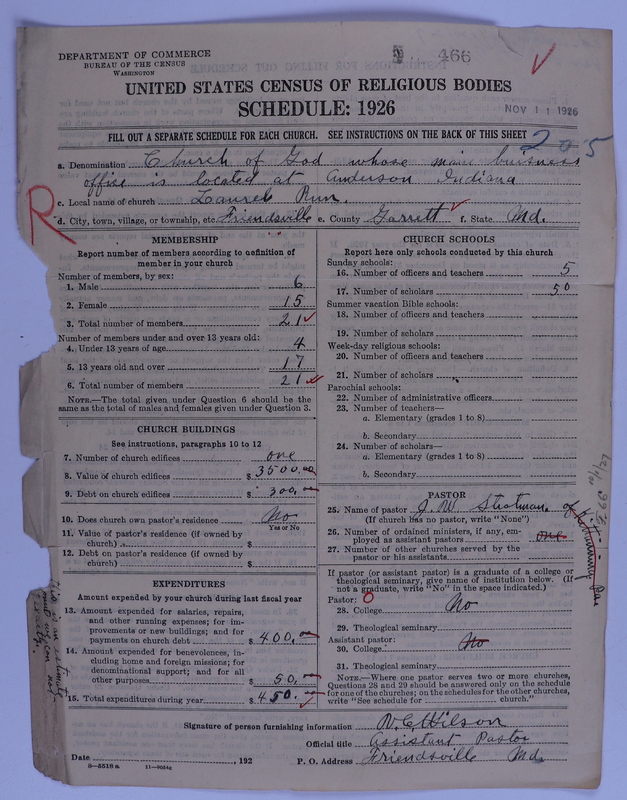 DEPARTMENT OF COMMERCE
BUREAU OF THE CENSUS
WASHINGTON
466
UNITED STATES CENSUS OF RELIGIOUS BODIES
SCHEDULE: 1926
NOV 11 1926
FILL OUT A SEPARATE SCHEDULE FOR EACH CHURCH. SEE INSTRUCTIONS ON THE BACK OF THIS SHEET
205
a. Denomination Church of God whose main buisness
office is located at Anderson Indiana
c. Local name of church Laurel Run.
d. City, town, village, or township, etc. Friendsville e. County Garrett f. State Md.
R
MEMBERSHIP
Report number of members according to definition of
member in your church
Number of members, by sex:
1. Male 6
2. Female 15
3. Total number of members 21
Number of members under and over 13 years old:
4. Under 13 years of age 4
5. 13 years old and over 17
6. Total number of members 21
NOTE.—The total given under Question 6 should be the
same as the total of males and females given under Question 3.
CHURCH BUILDINGS
See instructions, paragraphs 10 to 12
7. Number of church edifices one
8. Value of church edifices $ 3500.00
9. Debt on church edifices $ 300.00
10. Does church own pastor's residence No
Yes or No
11. Value of pastor's residence (if owned by
church) $
12. Debt on pastor's residence (if owned by
church) $
EXPENDITURES
Amount expended by your church during last fiscal year
13. Amount expended for salaries, repairs,
and other running expenses; for im-
provements or new buildings; and for
payments on church debt $ 400.
14. Amount expended for benevolences, in-
cluding home and foreign missions; for
denominational support; and for all
other purposes $ 50.
15. Total expenditures during year $ 450.
CHURCH SCHOOLS
Report here only schools conducted by this church
Sunday schools:
16. Number of officers and teachers 5
17. Number of scholars 50
Summer vacation Bible schools:
18. Number of officers and teachers
19. Number of scholars
Week-day religious schools:
20. Number of officers and teachers
21. Number of scholars
Parochial schools:
22. Number of administrative officers
23. Number of teachers—
a. Elementary (grades 1 to 8)
b. Secondary
24. Number of scholars—
a. Elementary (grades 1 to 8)
b. Secondary
PASTOR
25. Name of pastor J. W. Strotman. of
(If church has no pastor, write "None")
26. Number of ordained ministers, if any, em-
ployed as assistant pastors one
27. Number of other churches served by the
pastor or his assistants
If pastor (or assistant pastor) is a graduate of a college or
theological seminary, give name of institution below. (If
not a graduate, write "No" in the space indicated.)
Pastor: O
28. College No
29. Theological seminary
Assistant pastor:
30. College No
31. Theological seminary
NOTE.—Where one pastor serves two or more churches,
Questions 28 and 29 should be answered only on the schedule
for one of the churches; on the schedules for the other churches,
write "See schedule for church."
Signature of person furnishing information W. C. Wilson
Official title Assistant Pastor
Date , 192 P. O. Address Friendsville Md.
8—5518 a